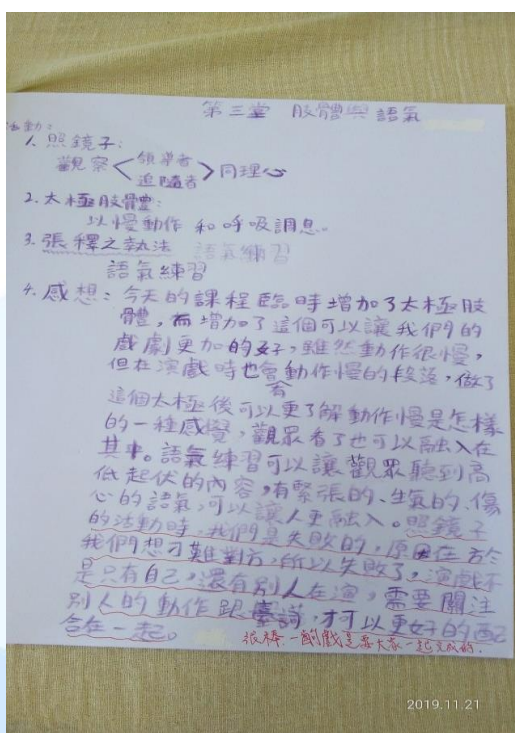 第三堂 肢體與語氣
活動:
1. 照鏡子:
觀察<領導者 追隨者>同理心
2. 太極肢體:
以慢動作 和呼吸調息。
3. 張釋之執法 語氣練習
語氣練習
4. 感想:今天的課程臨時增加了太極肢
體,而增加了這個可以讓我們的
戲劇更加的好,雖然動作很慢,
但在演戲時也會有動作慢的段落,做了
這個太極後可以更了解動作慢是怎樣
的一種感覺,觀眾看了也可以融入在
其中。語氣練習可以讓觀眾聽到高
低起伏的內容,有緊張的、生氣的、傷
心的語氣,可以讓人更融入。照鏡子
的活動時,我們是失敗的,原因在於
我們想刁難對方,所以失敗了,演戲不
是只有自己,還有別人在演,需要關注
別人的動作跟臺詞,才可以更好的配
合在一起。
很棒,一齣戲是要大家一起完成的.
2019.11.21